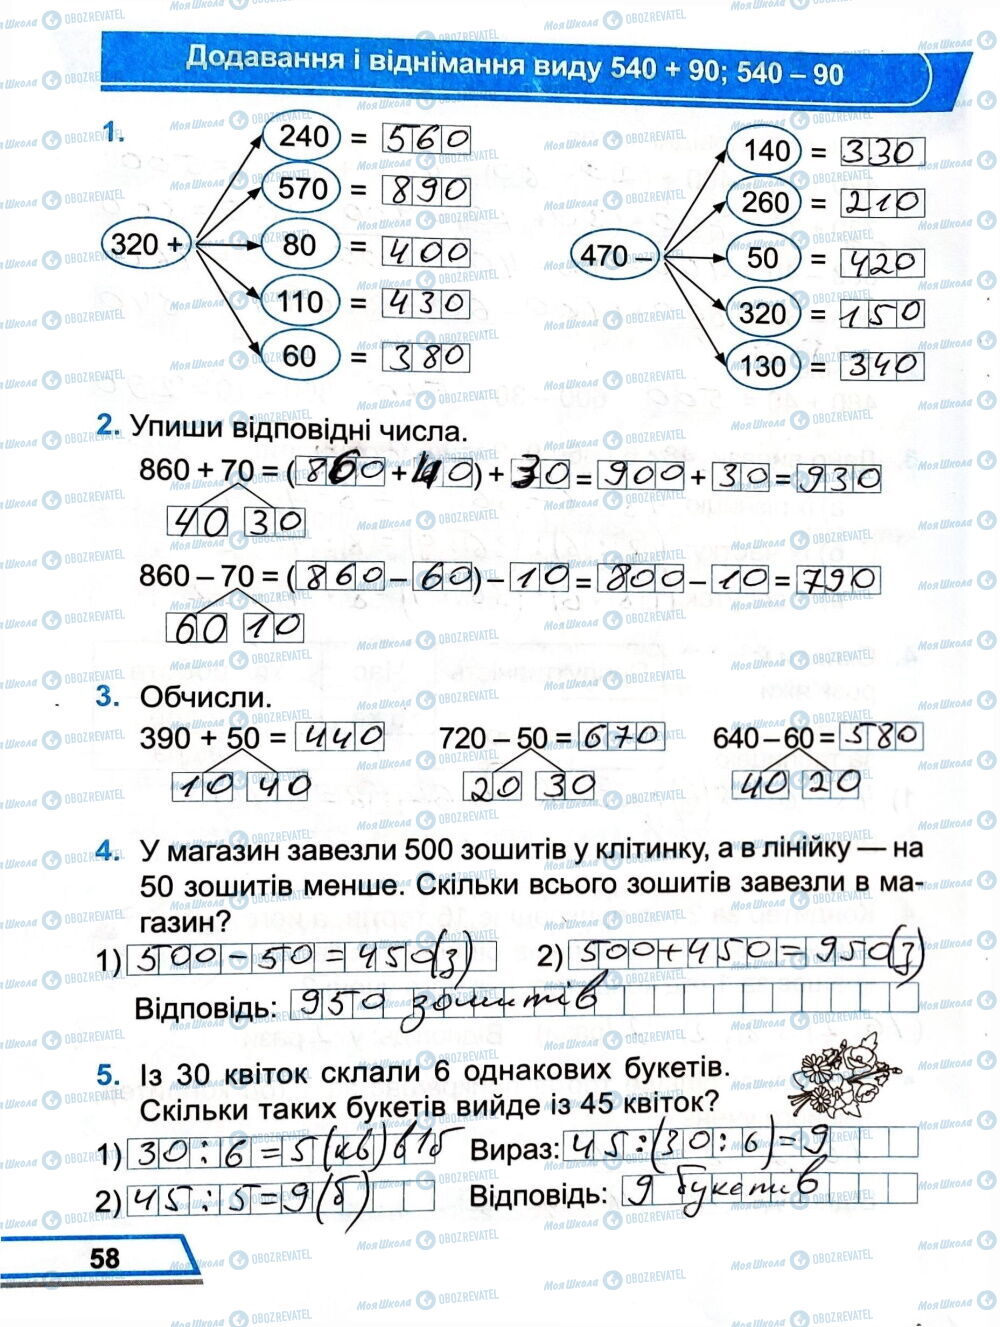 Додавання і віднімання виду 540 + 90; 540 – 90
1.
320 +
240 = 560
570 = 890
80 = 400
110 = 430
60 = 380
470 –
140 = 330
260 = 210
50 = 420
320 = 150
130 = 340
2. Упиши відповідні числа.
860 + 70 = (860 + 40) + 30 = 900 + 30 = 930
40 30
860 – 70 = (860 – 60) – 10 = 800 – 10 = 790
60 10
3. Обчисли.
390 + 50 = 440 720 – 50 = 670 640 – 60 = 580
10 40 20 30 40 20
4. У магазин завезли 500 зошитів у клітинку, а в лінійку — на
50 зошитів менше. Скільки всього зошитів завезли в ма-
газин?
1) 500 – 50 = 450 (з) 2) 500 + 450 = 950 (з)
Відповідь: 950 зошитів
5. Із 30 квіток склали 6 однакових букетів.
Скільки таких букетів вийде із 45 квіток?
1) 30 : 6 = 5 (кв) в 1б Вираз: 45 : (30 : 6) = 9
2) 45 : 5 = 9 (б) Відповідь: 9 букетів
58
МояШкола OBOZREVATEL